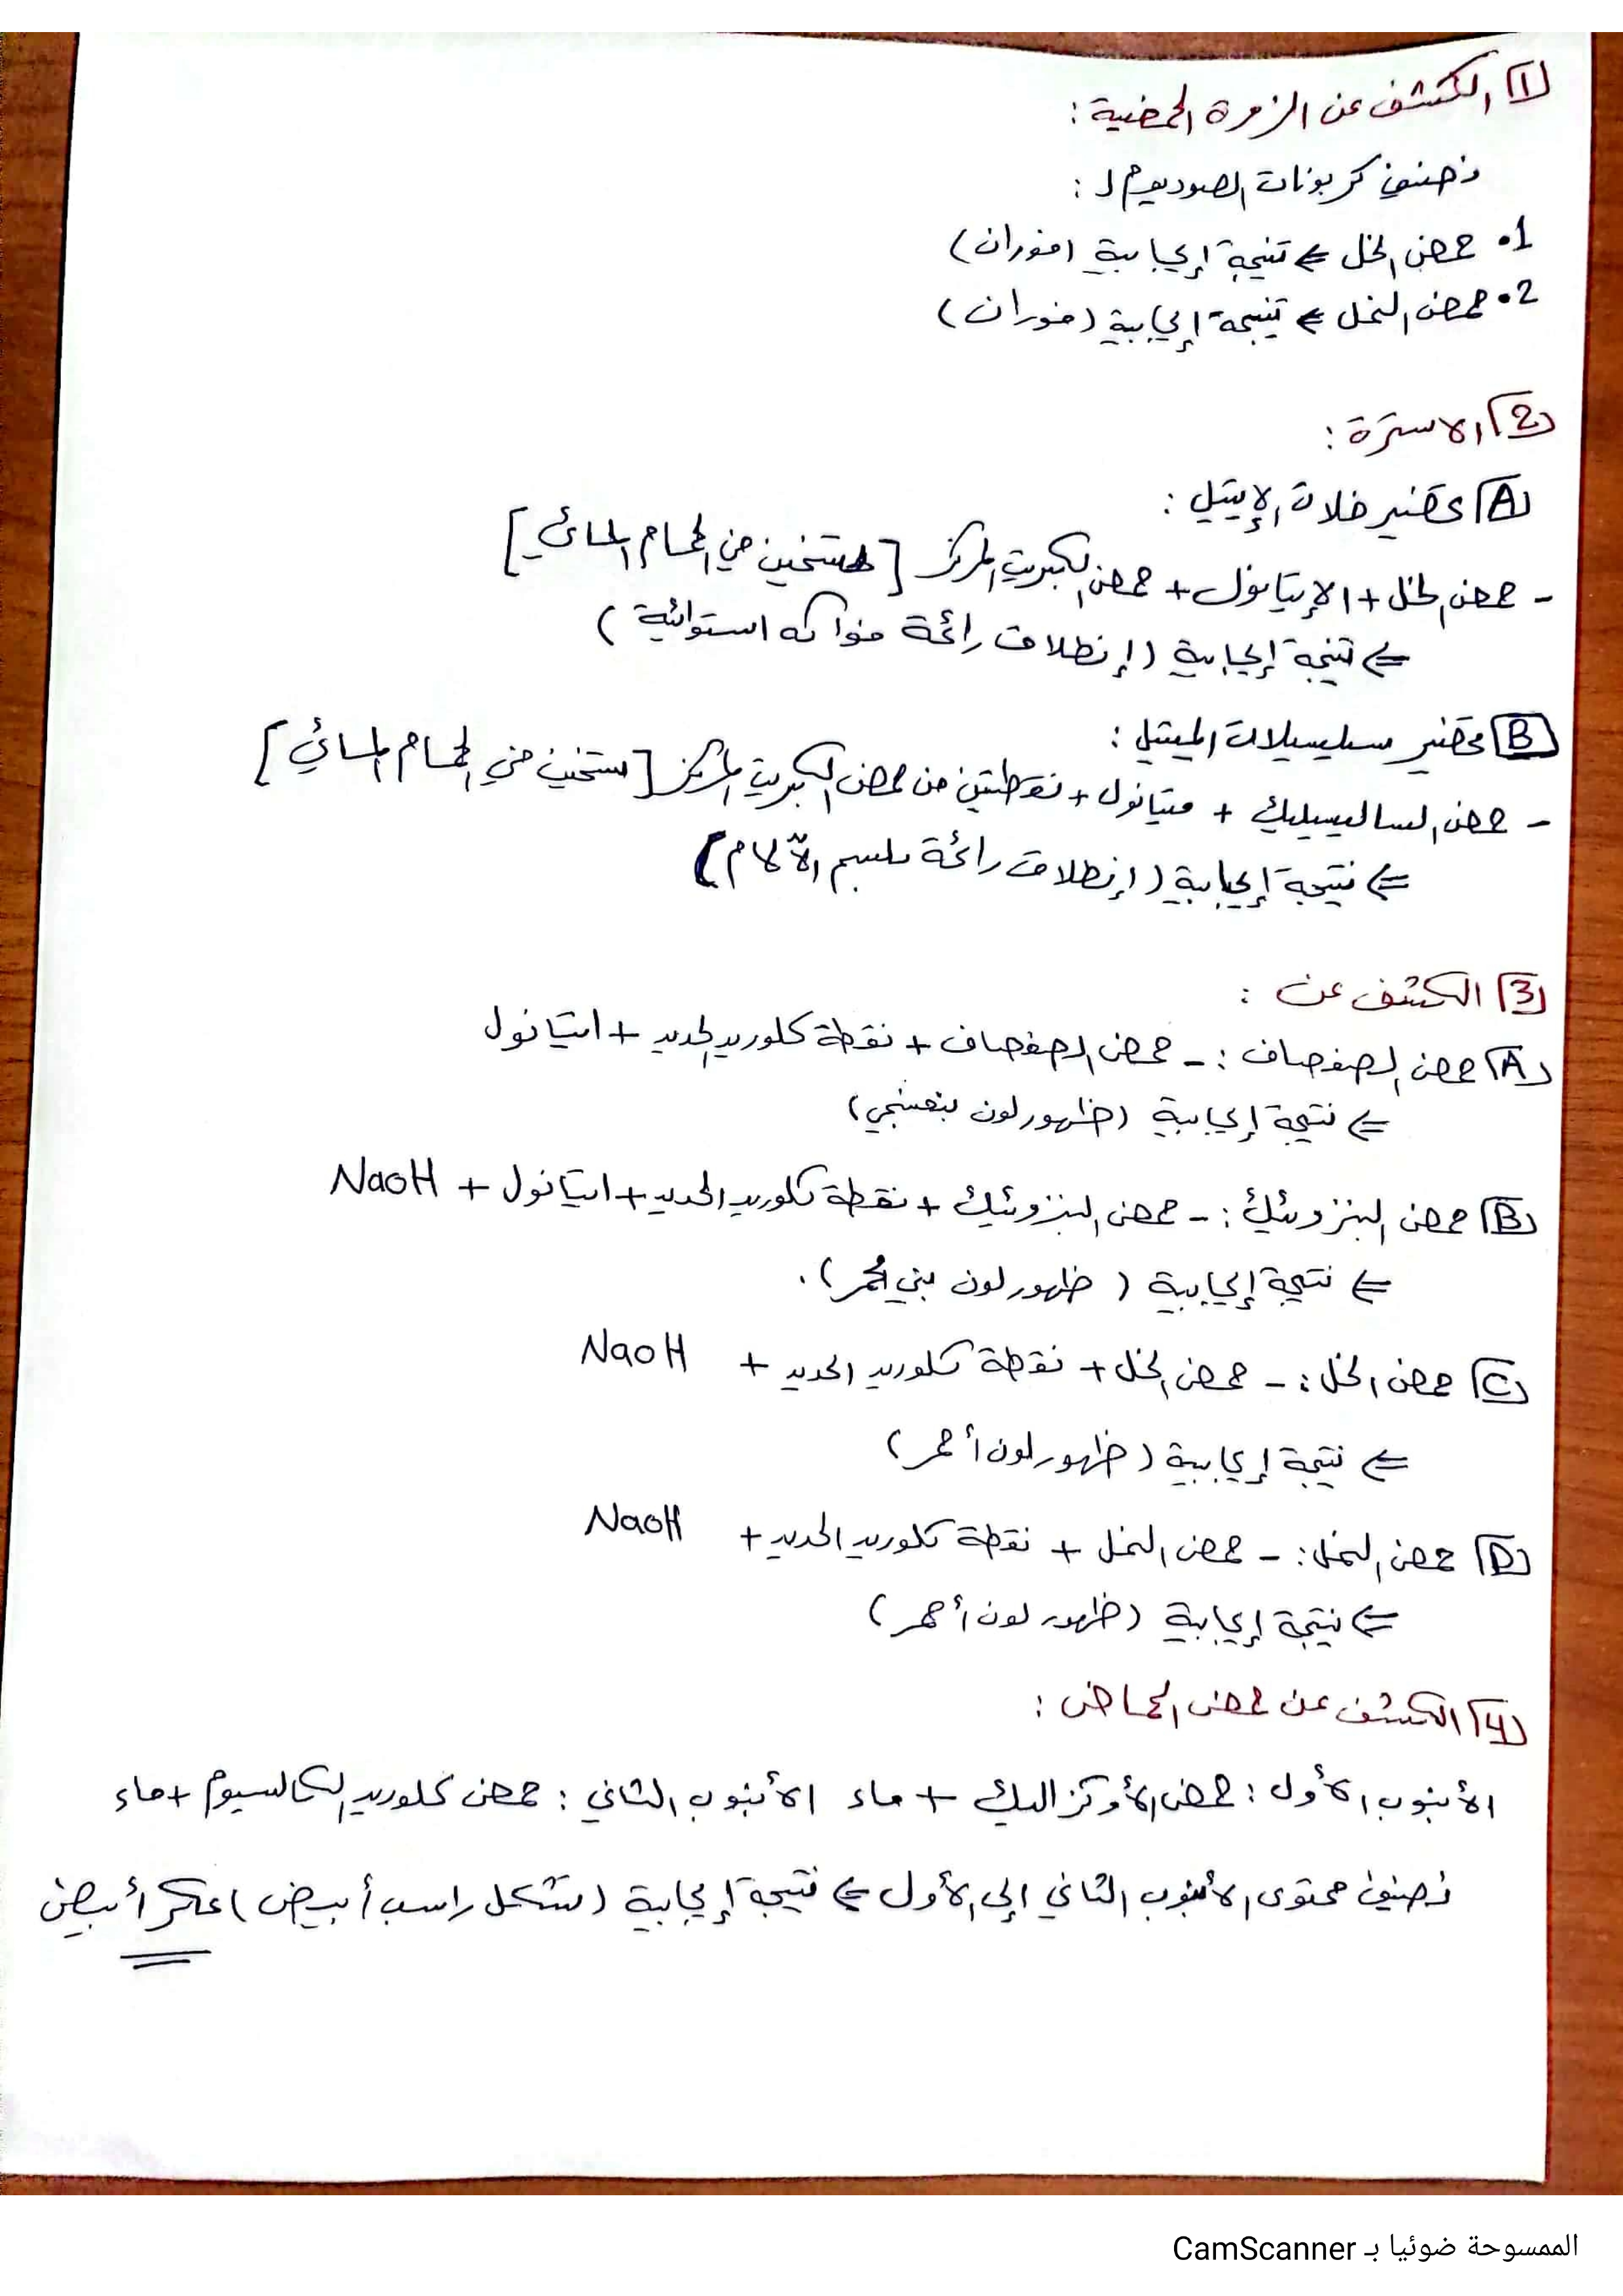 1 الكشف عن الزمرة الحمضية :
نضيف كربونات الصوديوم ل :
1• حمض الخل ⇐ نتيجة إيجابية (فوران)
2• حمض النمل ⇐ نتيجة إيجابية (فوران)
2 الاسترة :
A تحضير خلات الإيتيل :
- حمض الخل + الإيتانول + حمض الكبريت المركز [تسخين في الحمام المائي]
⇐ نتيجة إيجابية (إنطلاق رائحة فواكه استوائية)
B تحضير سيليسيلات الميتيل :
- حمض الساليسيليك + ميتانول + نقطتين من حمض الكبريت المركز [تسخين في الحمام المائي]
⇐ نتيجة إيجابية (إنطلاق رائحة بلسم الآلام)
3 الكشف عن :
A حمض الصفصاف : - حمض الصفصاف + نقطة كلوريد الحديد + ايتانول
⇐ نتيجة إيجابية (ظهور لون بنفسجي)
B حمض البنزوئيك : - حمض البنزوئيك + نقطة كلوريد الحديد + ايتانول + NaOH
⇐ نتيجة إيجابية (ظهور لون بني محمر).
C حمض الخل : - حمض الخل + نقطة كلوريد الحديد + NaOH
⇐ نتيجة إيجابية (ظهور لون أحمر)
D حمض النمل : - حمض النمل + نقطة كلوريد الحديد + NaOH
⇐ نتيجة إيجابية (ظهور لون أحمر)
4 الكشف عن حمض الحماض :
الأنبوب الأول : حمض الأوكزاليك + ماء الأنبوب الثاني : حمض كلوريد الكالسيوم + ماء
نضيف محتوى الأنبوب الثاني إلى الأول ⇐ نتيجة إيجابية (تشكل راسب أبيض) عكر أبيض
الممسوحة ضوئيا بـ CamScanner